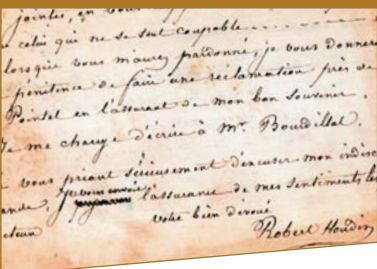 jointes, en vous
celui qui ne se sent coupable
lorsque vous m'aurez pardonné, je vous donnerai
pénitence de faire une réclamation près de
Pointel en l'assurant de mon bon souvenir.
Je me charge d'écrire à Mr. Bourdillat.
vous priant sérieusement d'excuser mon indisc
ande, je vous envoie l'assurance de mes sentiments les
cteur votre bien dévoué
Robert Houdin